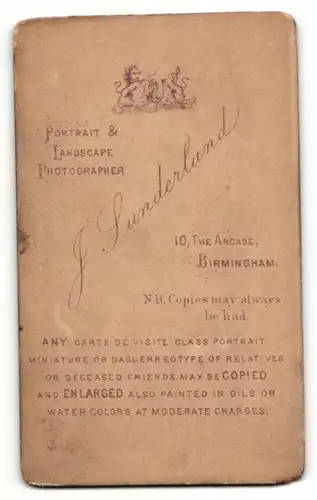 PORTRAIT &
LANDSCAPE
PHOTOGRAPHER
J Sunderland
10, THE ARCADE,
BIRMINGHAM.
N B. Copies may always
be had.
ANY CARTE DE VISITE GLASS PORTRAIT
MINIATURE OR DAGUERREOTYPE OF RELATIVES
OR DECEASED FRIENDS, MAY BE COPIED
AND ENLARGED, ALSO PAINTED IN OILS OR
WATER COLORS, AT MODERATE CHARGES.